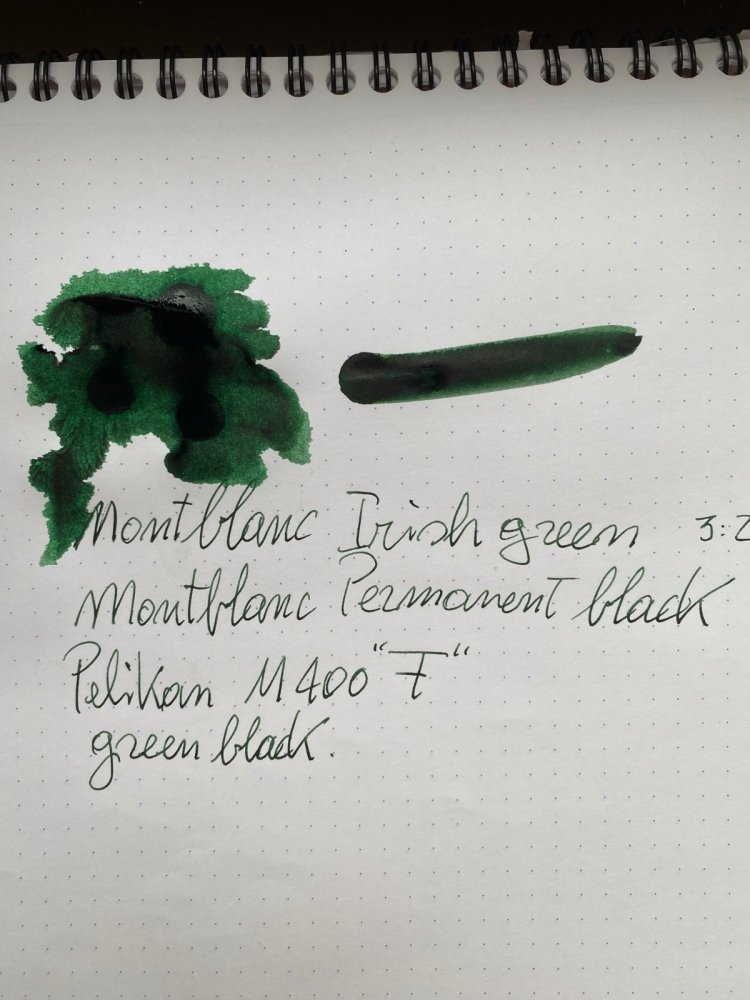 Montblanc Irish green 3:2
Montblanc Permanent black
Pelikan M400 "F"
green black.